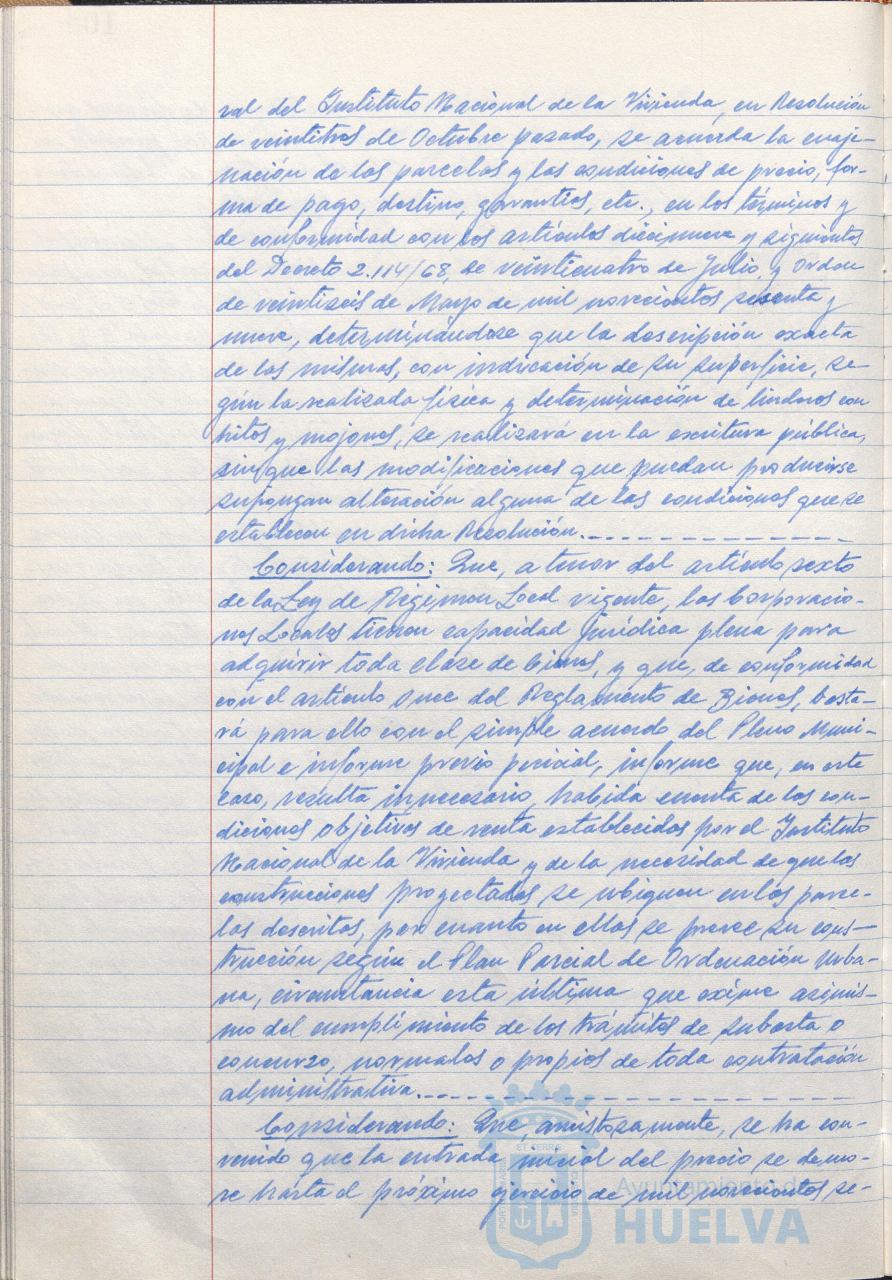 ral del Instituto Nacional de la Vivienda, en Resolución
de veintitres de Octubre pasado, se acuerda la enaje-
nación de las parcelas y las condiciones de precio, for-
ma de pago, destino, garantías, etc., en los términos y
de conformidad con los artículos diecinueve y siguientes
del Decreto 2.114/68, de veinticuatro de Julio, y Orden
de veintiseis de Mayo de mil novecientos sesenta y
nueve, determinándose que la descripción exacta
de las mismas, con indicación de su superficie, se-
gún la realizada física y determinación de linderos con
hitos y mojones, se realizará en la escritura pública,
sin que las modificaciones que puedan producirse
supongan alteración alguna de las condiciones que se
establecen en dicha Resolución.
Considerando: Que, a tenor del artículo sexto
de la Ley de Régimen Local vigente, las Corporacio-
nes Locales tienen capacidad jurídica plena para
adquirir toda clase de bienes, y que, de conformidad
con el artículo once del Reglamento de Bienes, basta-
rá para ello con el simple acuerdo del Pleno Muni-
cipal e informe previo pericial, informe que, en este
caso, resulta innecesario, habida cuenta de las con-
diciones objetivas de venta establecidas por el Instituto
Nacional de la Vivienda y de la necesidad de que las
construcciones proyectadas se ubiquen en las parce-
las descritas, por cuanto en ellas se prevee su cons-
trucción según el Plan Parcial de Ordenación Urba-
na, circunstancia esta última que exime asimis-
mo del cumplimiento de los trámites de subasta o
concurso, normales o propios de toda contratación
administrativa.
Considerando: Que, amistosamente, se ha con-
venido que la entrada inicial del precio se demo-
re hasta el próximo ejercicio de mil novecientos se-
Ayuntamiento de
HUELVA